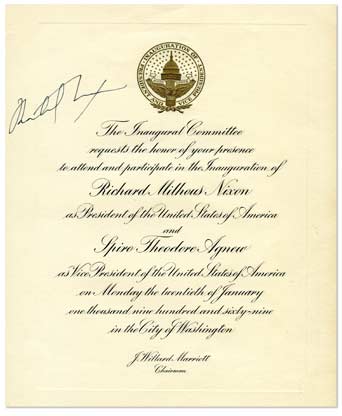 The Inaugural Committee
requests the honor of your presence
to attend and participate in the Inauguration of
Richard Milhous Nixon
as President of the United States of America
and
Spiro Theodore Agnew
as Vice President of the United States of America
on Monday the twentieth of January
one thousand nine hundred and sixty-nine
in the City of Washington
J. Willard Marriott
Chairman